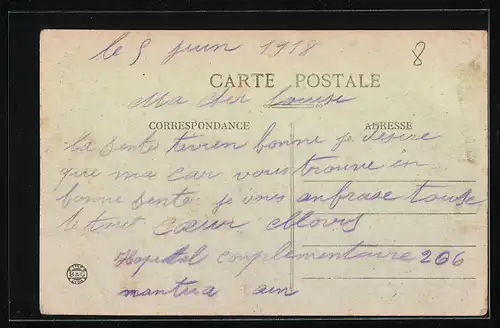 le 5 juin 1918
8
CARTE POSTALE
Ma cher Louise
CORRESPONDANCE
ADRESSE
la sente bonne je desire
que ma car vous trouve en
bonne sente je vous anbrase touse
le tout cœur
Hopital complementaire 206
nantua ain
B&G